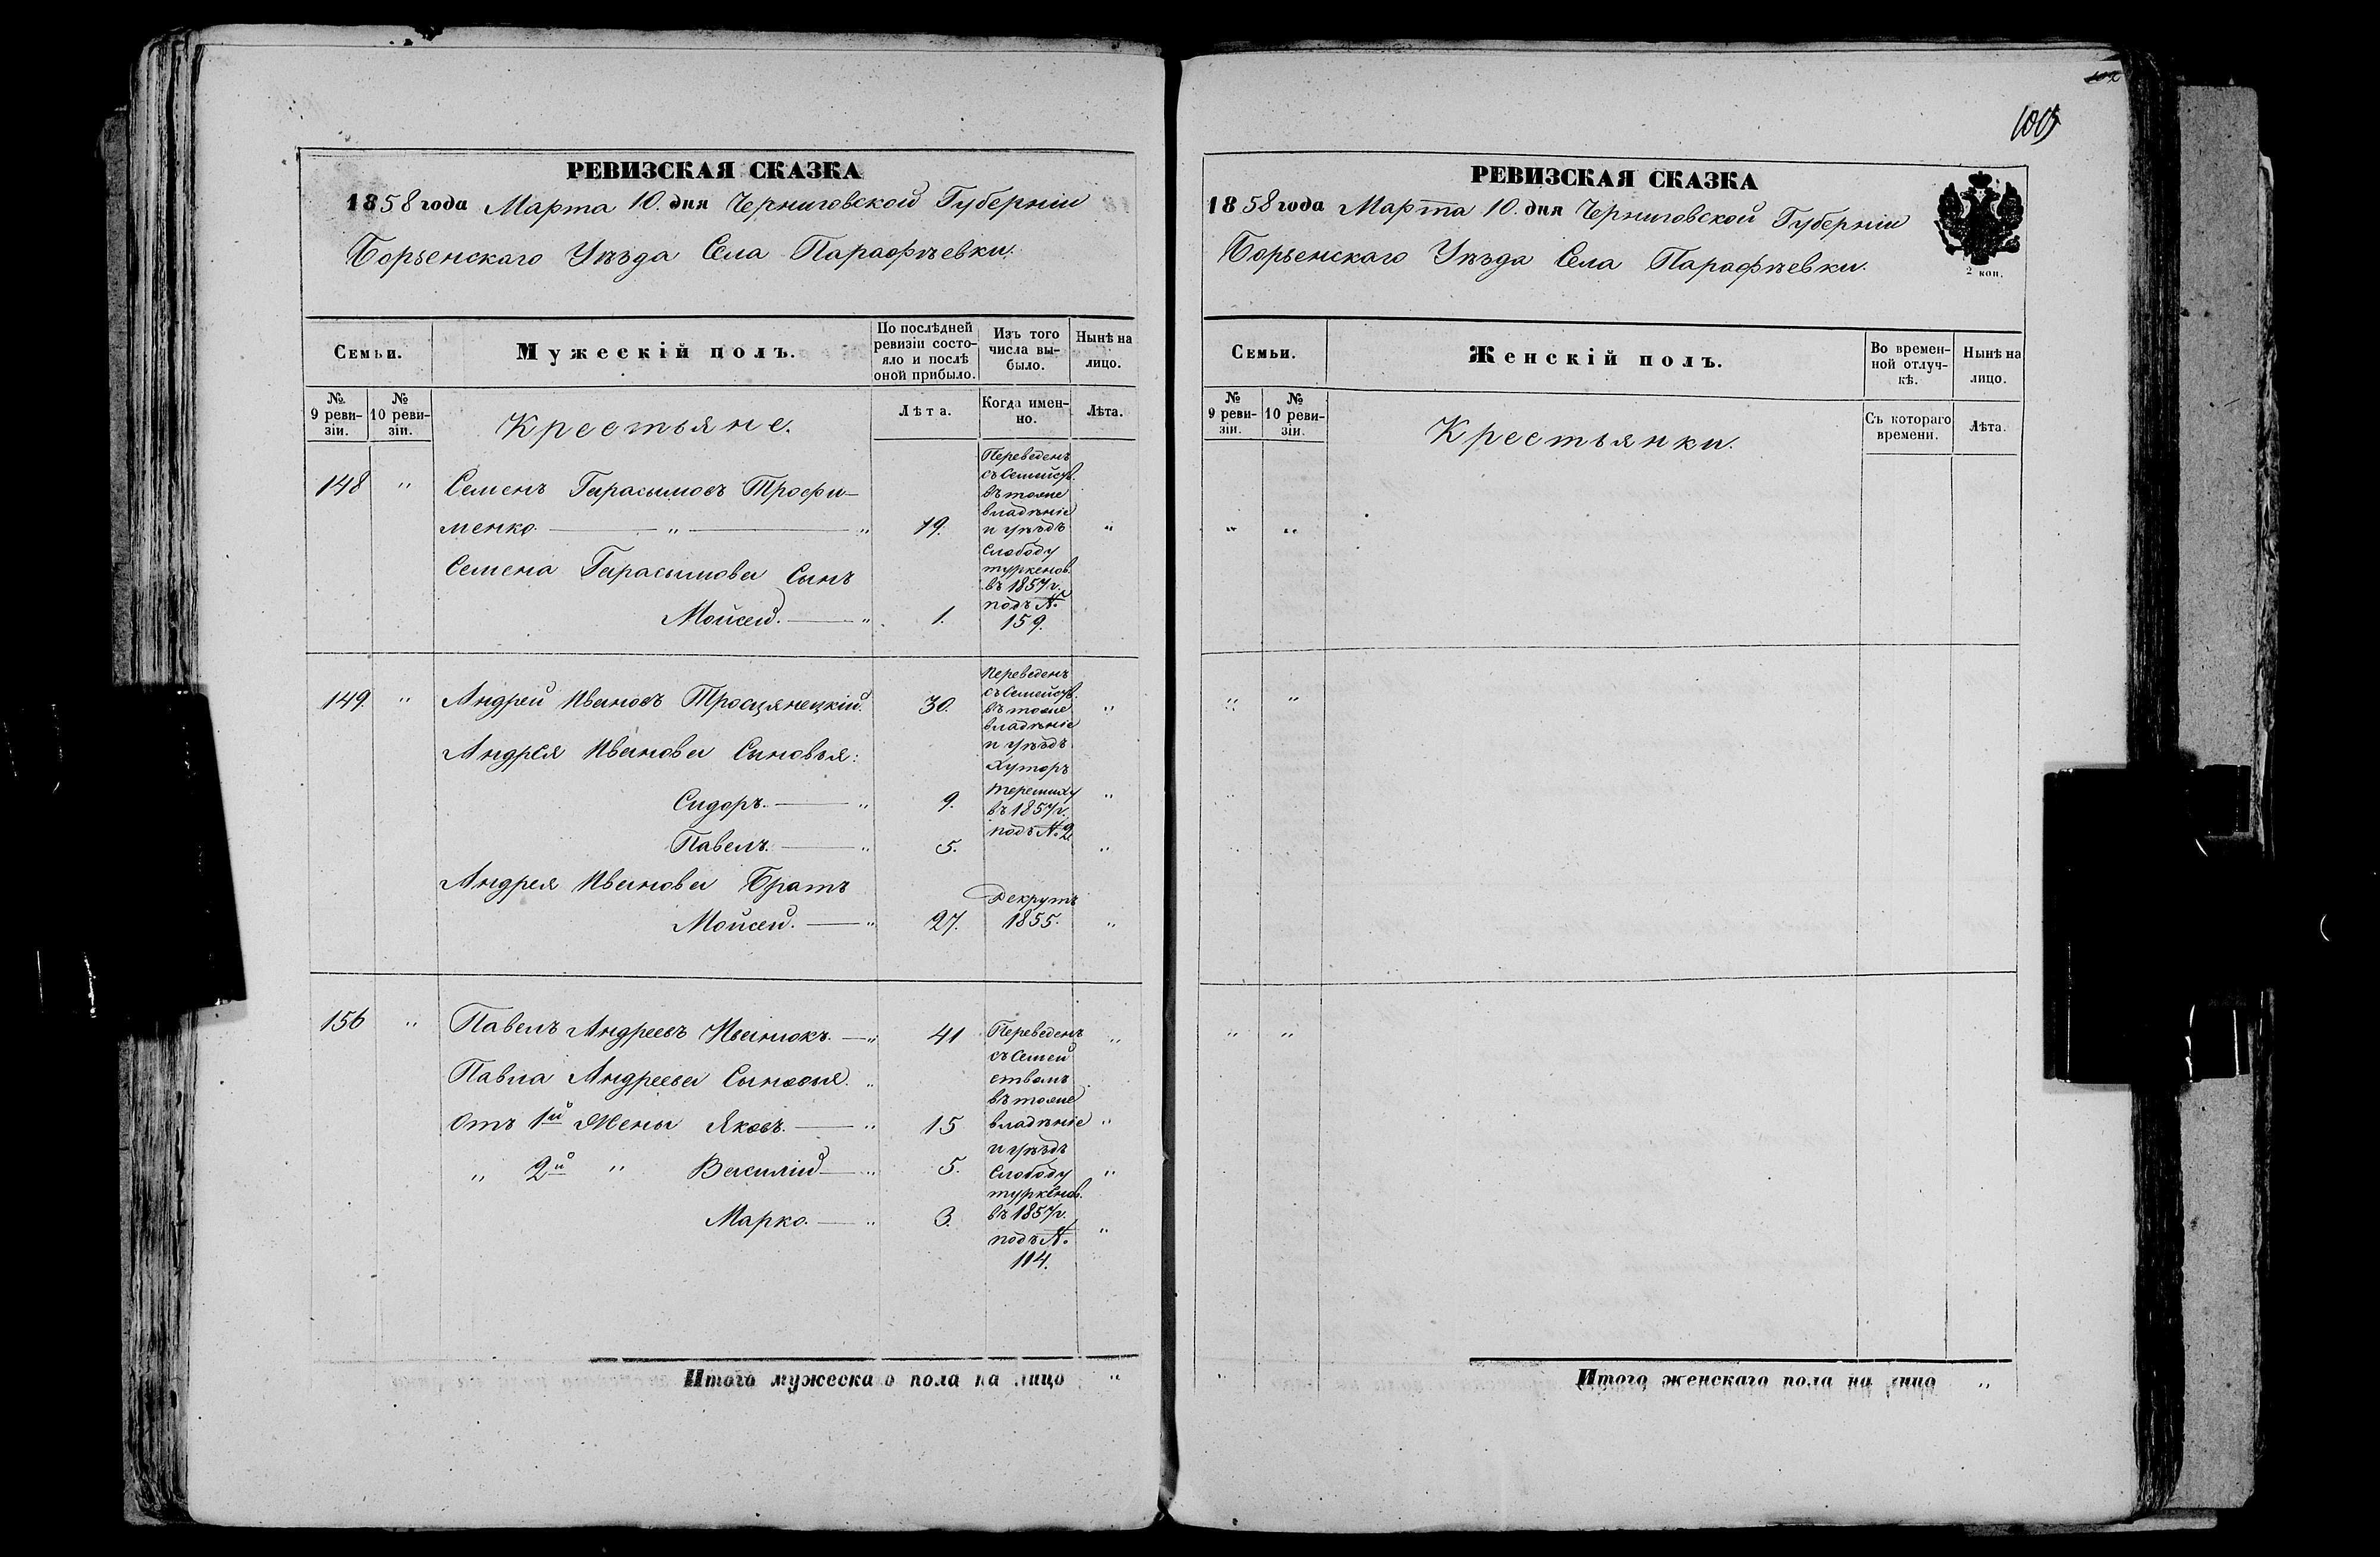 РЕВИЗСКАЯ СКАЗКА
1858 года Марта 10. дня Черниговской Губерніи
Борзенскаго Уѣзда Села Парафѣевки.
Семьи.
Мужескій полъ.
По послѣдней ревизіи состояло и послѣ оной прибыло.
Изъ того числа выбыло.
Нынѣ на лицо.
№ 9 ревизіи.
№ 10 ревизіи.
Крестьяне.
Лѣта.
Когда именно.
Лѣта.
148 " Семенъ Гарасимовъ Трофи-
менко. " " 19. "
Семена Гарасимова Сынъ
Мойсей. " 1.
Переведенъ
съ Семейств.
въ тоже
владѣніе
и уѣздъ
Слободу
туркенов.
въ 1857 г.
подъ №
159.
149. " Андрей Ивановъ Тросцянецкій. 30. "
Андрея Иванова Сыновья:
Сидоръ. " 9. "
Павелъ. " 5. "
Переведенъ
съ Семейств.
въ тоже
владѣніе
и уѣздъ
Хуторъ
въ 1857 г.
подъ № 2
Андрея Иванова Братъ
Мойсей. " 27. "
Рекрутъ
1855.
156 " Павелъ Андреевъ Иванюкъ. " 41 "
Павла Андреева Сыновья. "
Отъ 1й Жены Яковъ. " 15 "
" 2й " Василій " 5. "
Марко. " 3. "
Переведенъ
съ Семей
ствомъ
въ тоже
владѣніе
и уѣздъ
Слободу
туркенов.
въ 1857 г.
подъ №
114.
Итого мужескаго пола на лицо "
105
РЕВИЗСКАЯ СКАЗКА
1858 года Марта 10. дня Черниговской Губерніи
Борзенскаго Уѣзда Села Парафѣевки.
2 коп.
Семьи.
Женскій полъ.
Во временной отлучкѣ.
Нынѣ на лицо.
№ 9 ревизіи.
№ 10 ревизіи.
Крестьянки.
Съ котораго времени.
Лѣта.
" "
" "
" "
Итого женскаго пола на лицо "